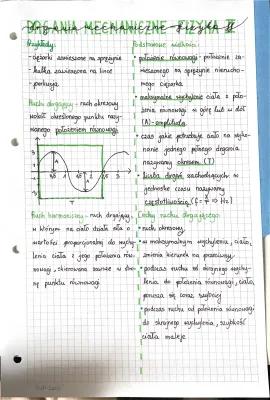 DRGANIA MECHANICZNE - FIZYKA II
Przykłady:
- ciężarki zawieszone na sprężynie
- kulka zawieszona na lince
- perkusja
Ruch drgający - ruch okresowy
wokół określonego punktu nazy-
wanego położeniem równowagi
T
Ruch harmoniczny - ruch drgający,
w którym na ciało działa siła o
wartości proporcjonalnej do wychy-
lenia ciała z jego położenia rów-
nowagi, skierowana zawsze w stro-
nę punktu równowagi
Podstawowe wielkości:
• położenie równowagi - położenie za-
wieszonego na sprężynie nierucho-
mego ciężarka
• maksymalne wychylenie ciała z poło-
żenia równowagi w górę lub w dół
(A) - amplituda
• czas jakie potrzebuje ciało na wyko-
nanie jednego pełnego drgania
nazywamy okresem (T)
• liczba drgań zachodzących w
jednostce czasu nazywamy
częstotliwością (f = 1/T ⇒ Hz)
Cechy ruchu drgającego:
• ruch okresowy
• w maksymalnym wychyleniu, ciało
zmienia kierunek na przeciwny
• podczas ruchu od skrajnego wychy-
lenia do położenia równowagi, ciało
porusza się coraz szybciej
• podczas ruchu od położenia równowagi
do skrajnego wychylenia, szybkość
ciała maleje